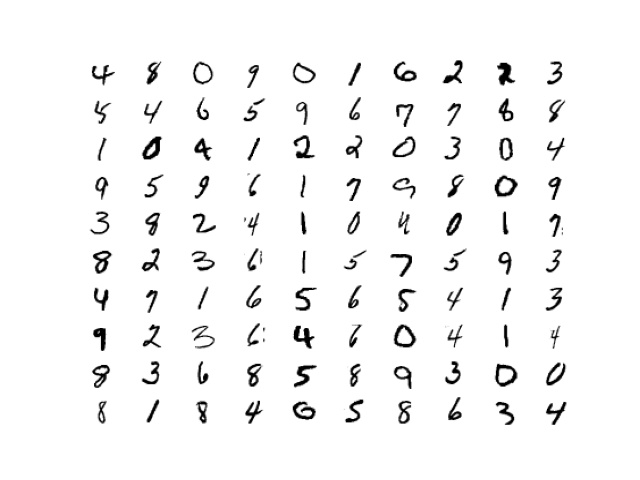 4 8 0 9 0 1 6 2 2 3
5 4 6 5 9 6 7 7 8 8
1 0 4 1 2 2 0 3 0 4
9 5 9 6 1 7 9 8 0 9
3 8 2 4 1 0 4 0 1 7
8 2 3 6 1 5 7 5 9 3
4 7 1 6 5 6 5 4 1 3
9 2 3 6 4 6 0 4 1 4
8 3 6 8 5 8 9 3 0 0
8 1 8 4 0 5 8 6 3 4